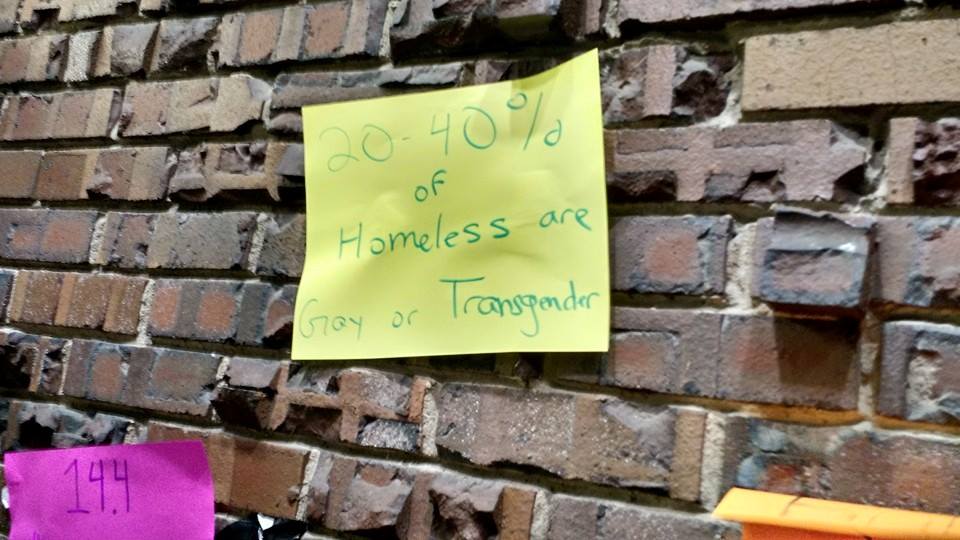 20-40%
of
Homeless are
Gay or Transgender
14.4